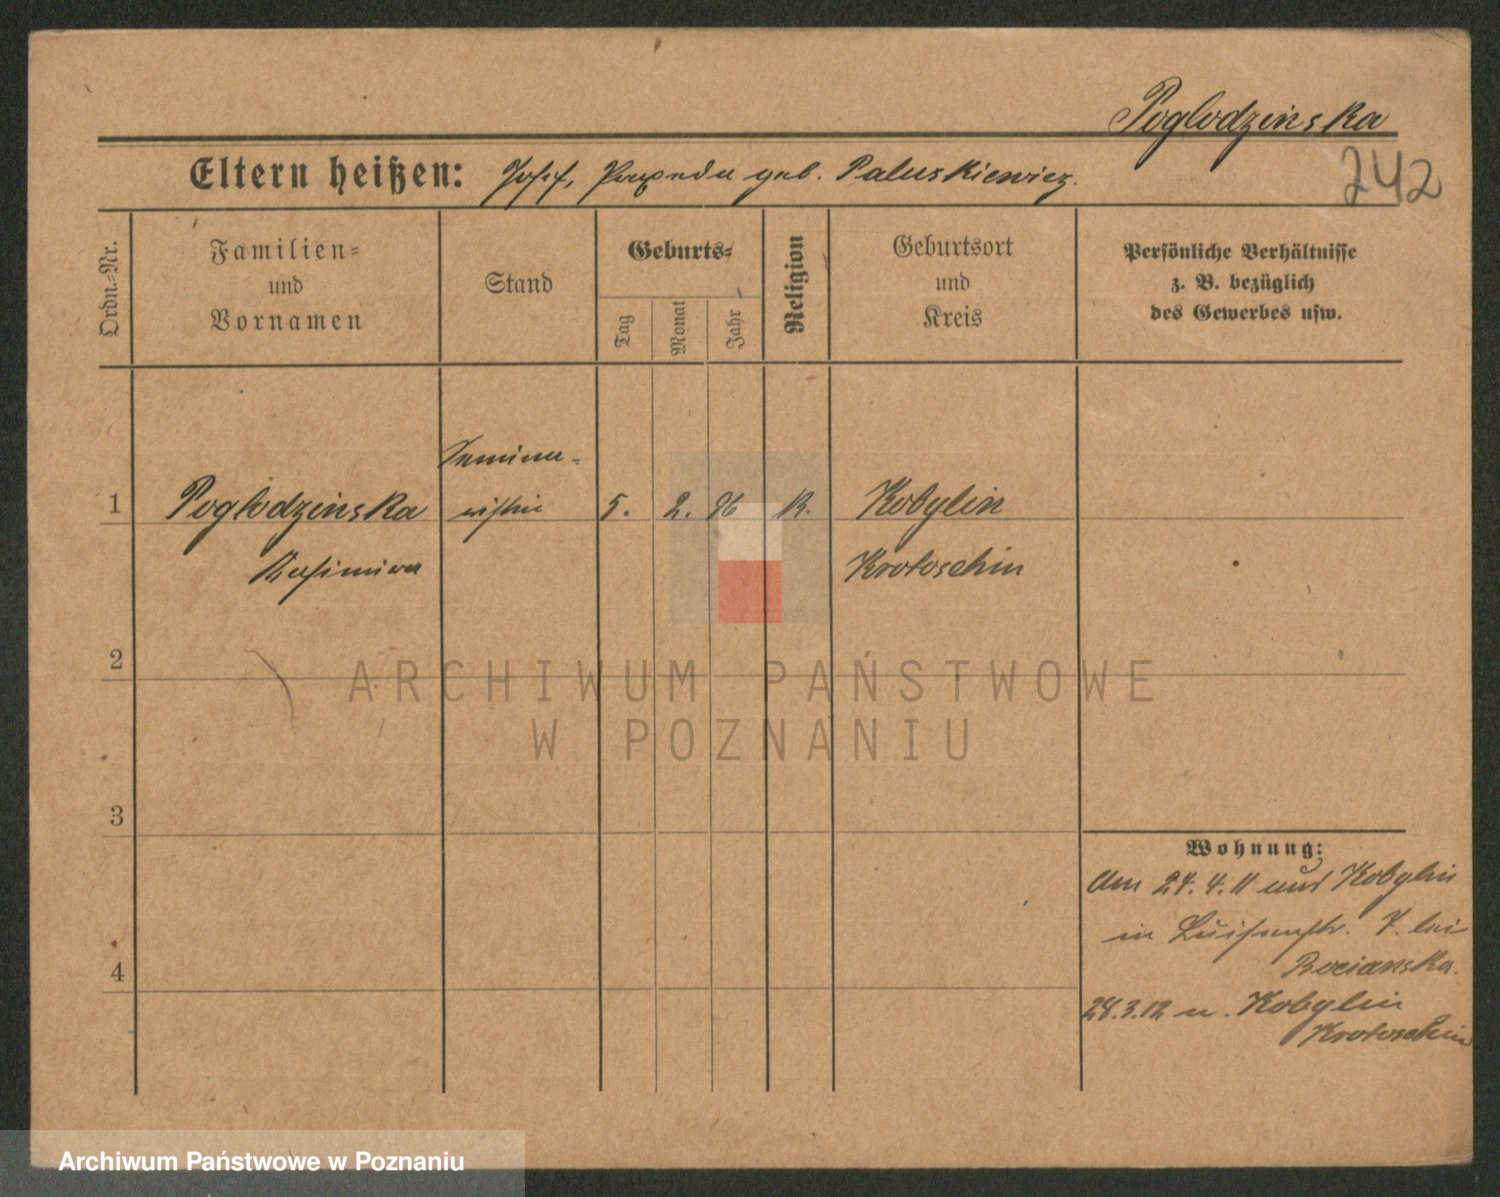 Poglodzinska
Eltern heißen: Josef, geb. Paluskiewicz.
242
Ordn.-Nr.
Familien-
und
Vornamen
Stand
Geburts-
Tag
Monat
Jahr
Religion
Geburtsort
und
Kreis
Persönliche Verhältnisse
z. B. bezüglich
des Gewerbes usw.
Semina-
1 Poglodzinska ristin 5. 2. 96 K. Kobylin
Kasimira Krotoschin
2
3
4
Wohnung:
Am 24. 4. 11 aus Kobylin
in Luisenstr. 7. bei
Bocianska.
28.3.12 n. Kobylin
Krotoschin
ARCHIWUM PAŃSTWOWE
W POZNANIU
Archiwum Państwowe w Poznaniu